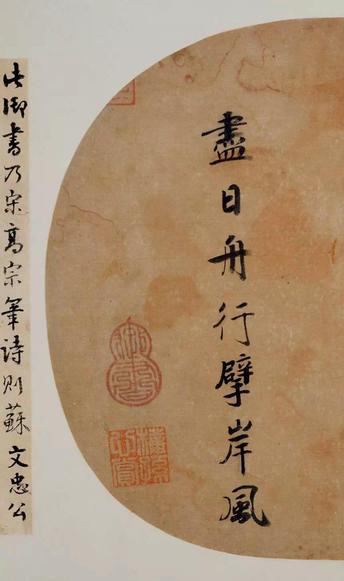 盡日舟行擘岸風
御書
此御書乃宋高宗筆詩則蘇文忠公